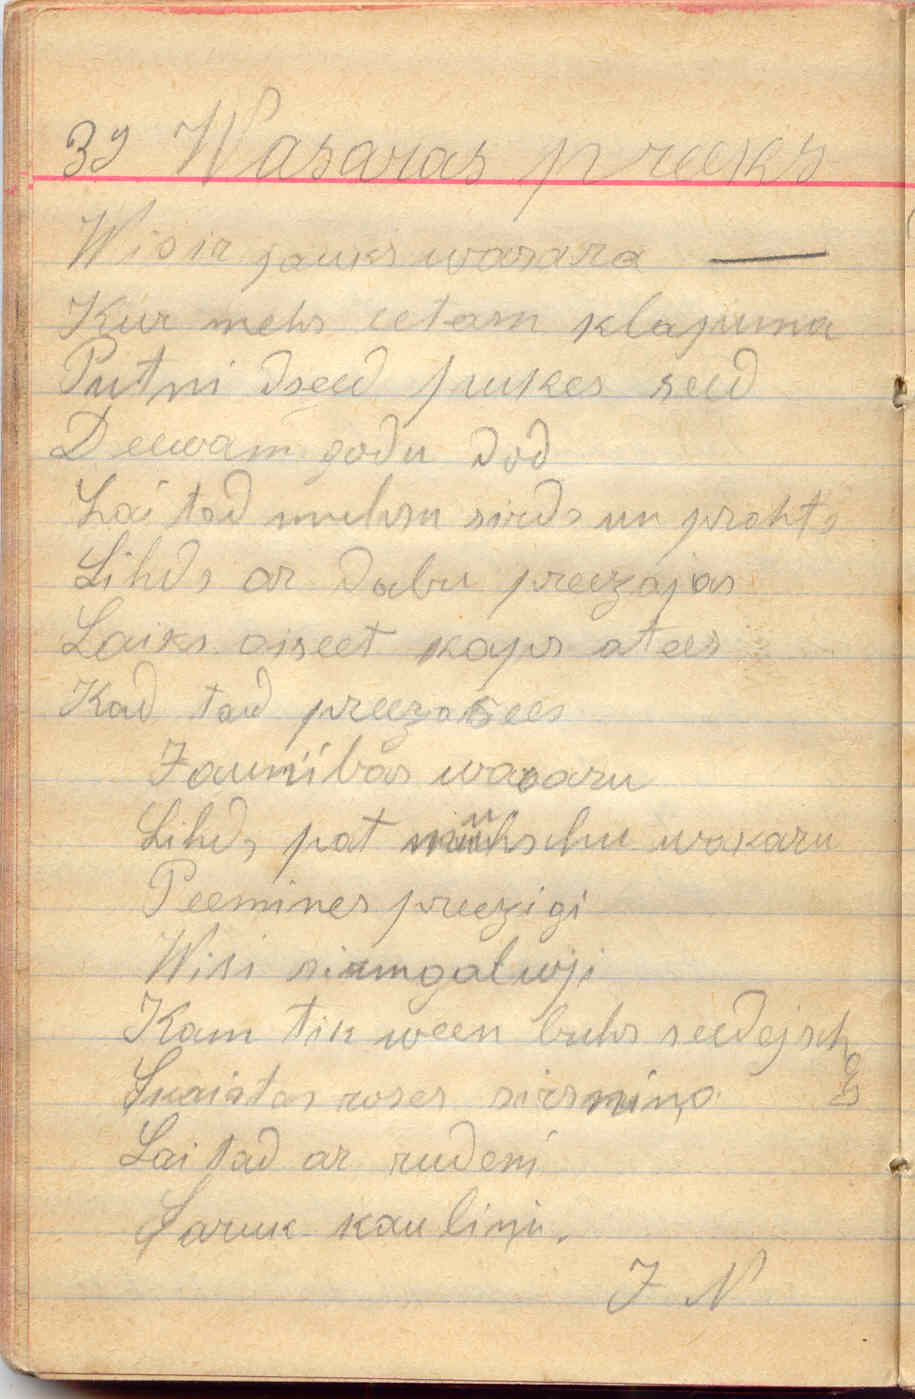 39 Wasaras preeks
Wis ir jauks wasara —
Kur mehs eetam klajuma
Putni dseed pukes seed
Deewam godu dod
Lai tad muhsu sirds un prahts
Lihds ar dabu preezajas
Laiks aiseet kaps atees
Kad tad preezasees
Jaunibas wasaru
Lihds pat muhschu wakaru
Peemines preezigi
Wisi sirmgalwji
Kam tik ween buhs seedejschas
Skaistas roses sirsniņa
Lai tad ar rudeni
Saruk kauliņi.
J N